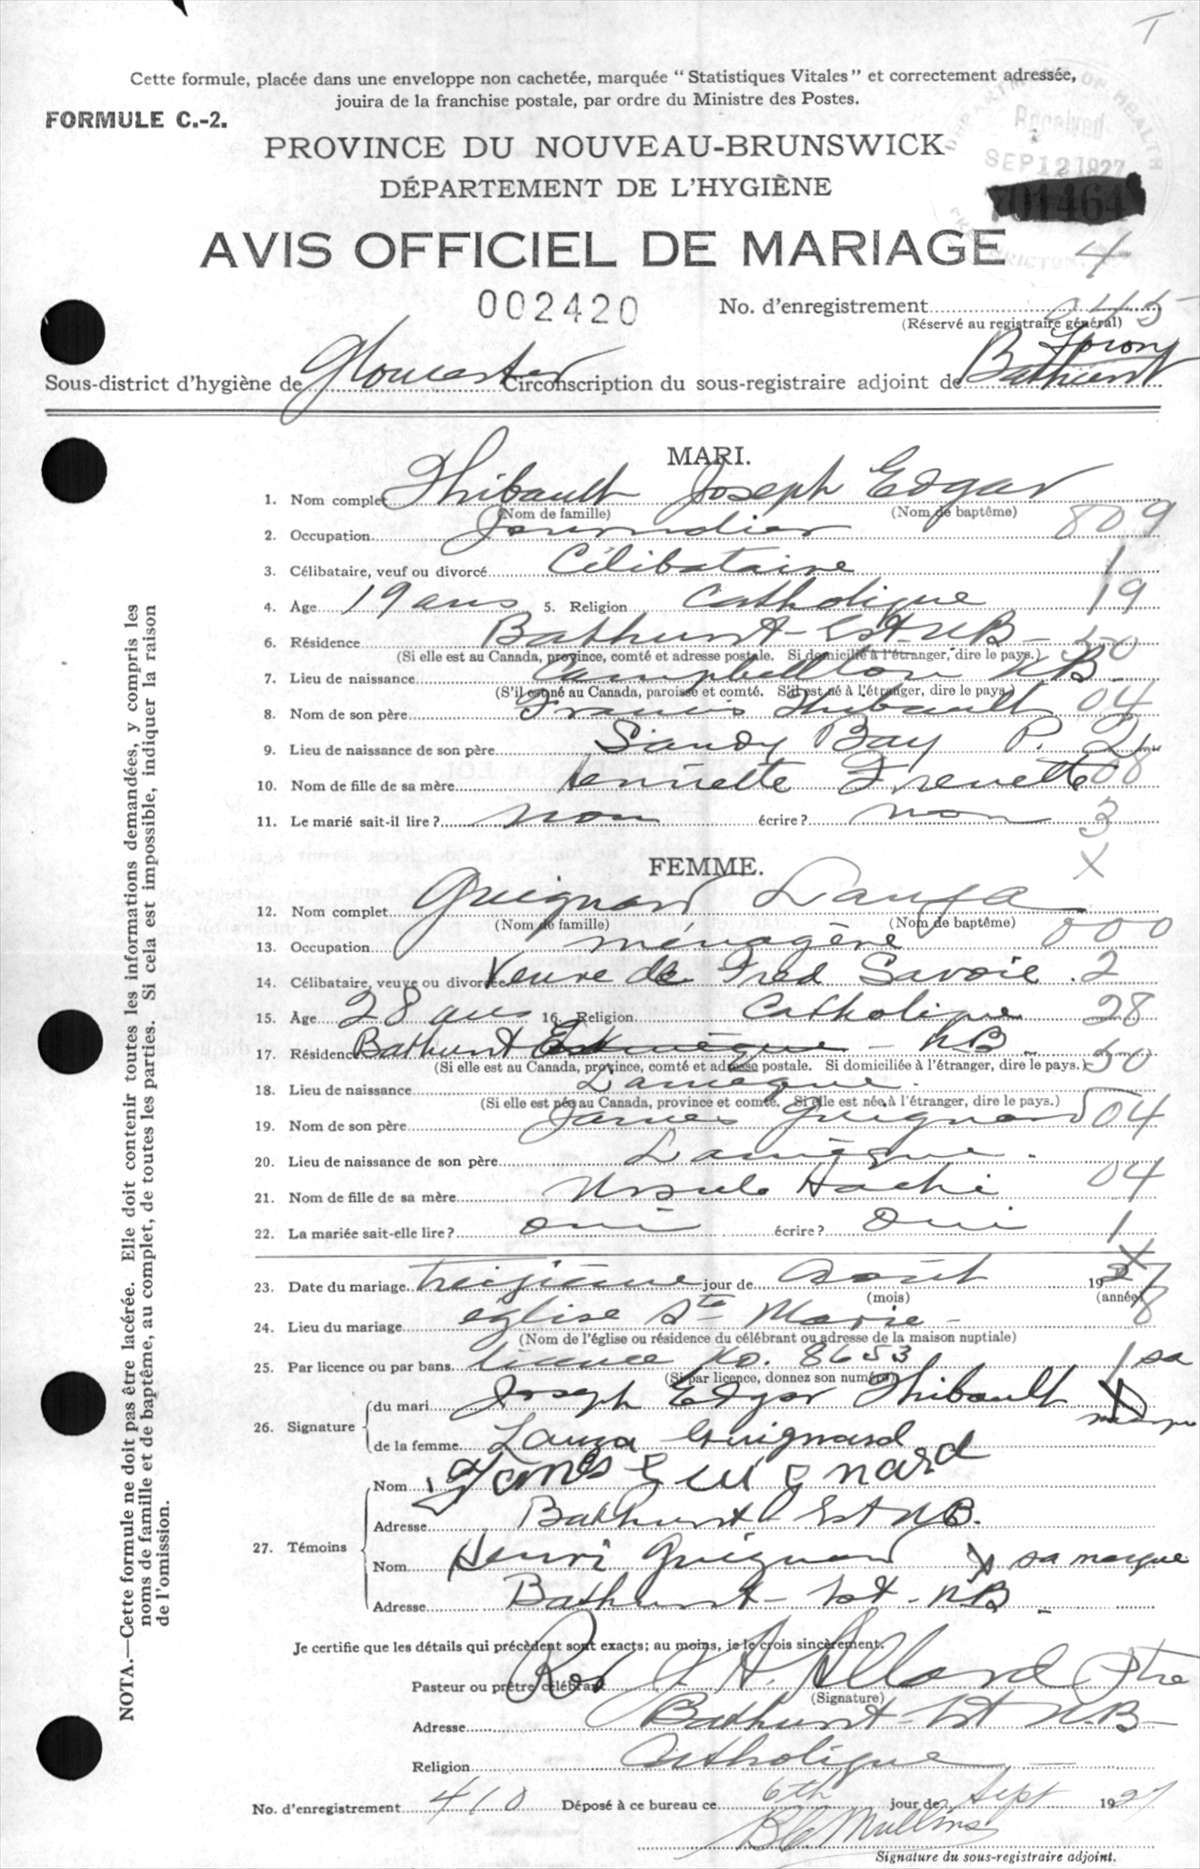 T
Cette formule, placée dans une enveloppe non cachetée, marquée "Statistiques Vitales" et correctement adressée,
jouira de la franchise postale, par ordre du Ministre des Postes.
FORMULE C.-2.
DEPARTMENT OF HEALTH
Received
SEP 12 1927
PROVINCE DU NOUVEAU-BRUNSWICK
DÉPARTEMENT DE L'HYGIÈNE
701464
AVIS OFFICIEL DE MARIAGE
4
002420
No. d'enregistrement
(Réservé au registraire général)
Sous-district d'hygiène de Gloucester Circonscription du sous-registraire adjoint de Bathurst
MARI.
1. Nom complet Thibault Joseph Edgar
(Nom de famille) (Nom de baptême)
2. Occupation Journalier 809
3. Célibataire, veuf ou divorcé Célibataire 1
4. Age 19 ans 5. Religion Catholique 19
6. Résidence Bathurst-Est N.B- 50
(Si elle est au Canada, province, comté et adresse postale. Si domicilié à l'étranger, dire le pays.)
7. Lieu de naissance Campbellton N B.
(S'il est né au Canada, paroisse et comté. S'il est né à l'étranger, dire le pays.)
8. Nom de son père Francis Thibault 04
9. Lieu de naissance de son père Sandy Bay P. Q
10. Nom de fille de sa mère Henriette Frenette 08
11. Le marié sait-il lire? non écrire? non 3
X
FEMME.
12. Nom complet Guignard Lauza
(Nom de famille) (Nom de baptême)
13. Occupation ménagère 000
14. Célibataire, veuve ou divorcée Veuve de Fred Savoie. 2
15. Age 28 ans 16. Religion Catholique 28
17. Résidence Bathurst Est - N B 50
(Si elle est au Canada, province, comté et adresse postale. Si domiciliée à l'étranger, dire le pays.)
18. Lieu de naissance Lamèque.
(Si elle est née au Canada, province et comté. Si elle est née à l'étranger, dire le pays.)
19. Nom de son père James Guignard 04
20. Lieu de naissance de son père Lamèque.
21. Nom de fille de sa mère Ursule Haché 04
22. La mariée sait-elle lire? oui écrire? Oui 1
X
23. Date du mariage treizième jour de Août 1927
(mois) (année)
24. Lieu du mariage église Ste Marie - 8
(Nom de l'église ou résidence du célébrant ou adresse de la maison nuptiale)
25. Par licence ou par bans licence No. 8653 1
(Si par licence, donnez son numéro)
26. Signature du mari Joseph Edgar Thibault X sa marque
de la femme Lauza Guignard
27. Témoins Nom James Guignard
Adresse Bathurst Est N.B.
Nom Henri Guignard X sa marque
Adresse Bathurst-Est-N.B-
Je certifie que les détails qui précèdent sont exacts; au moins, je le crois sincèrement.
Pasteur ou prêtre célébrant Rev J. A. Allard Ptre
(Signature)
Adresse Bathurst-Est N.B-
Religion Catholique
No. d'enregistrement 410 Déposé à ce bureau ce 6th jour de Sept 1927
Mullins
Signature du sous-registraire adjoint.
NOTA.—Cette formule ne doit pas être lacérée. Elle doit contenir toutes les informations demandées, y compris les
noms de famille et de baptême, au complet, de toutes les parties. Si cela est impossible, indiquer la raison
de l'omission.